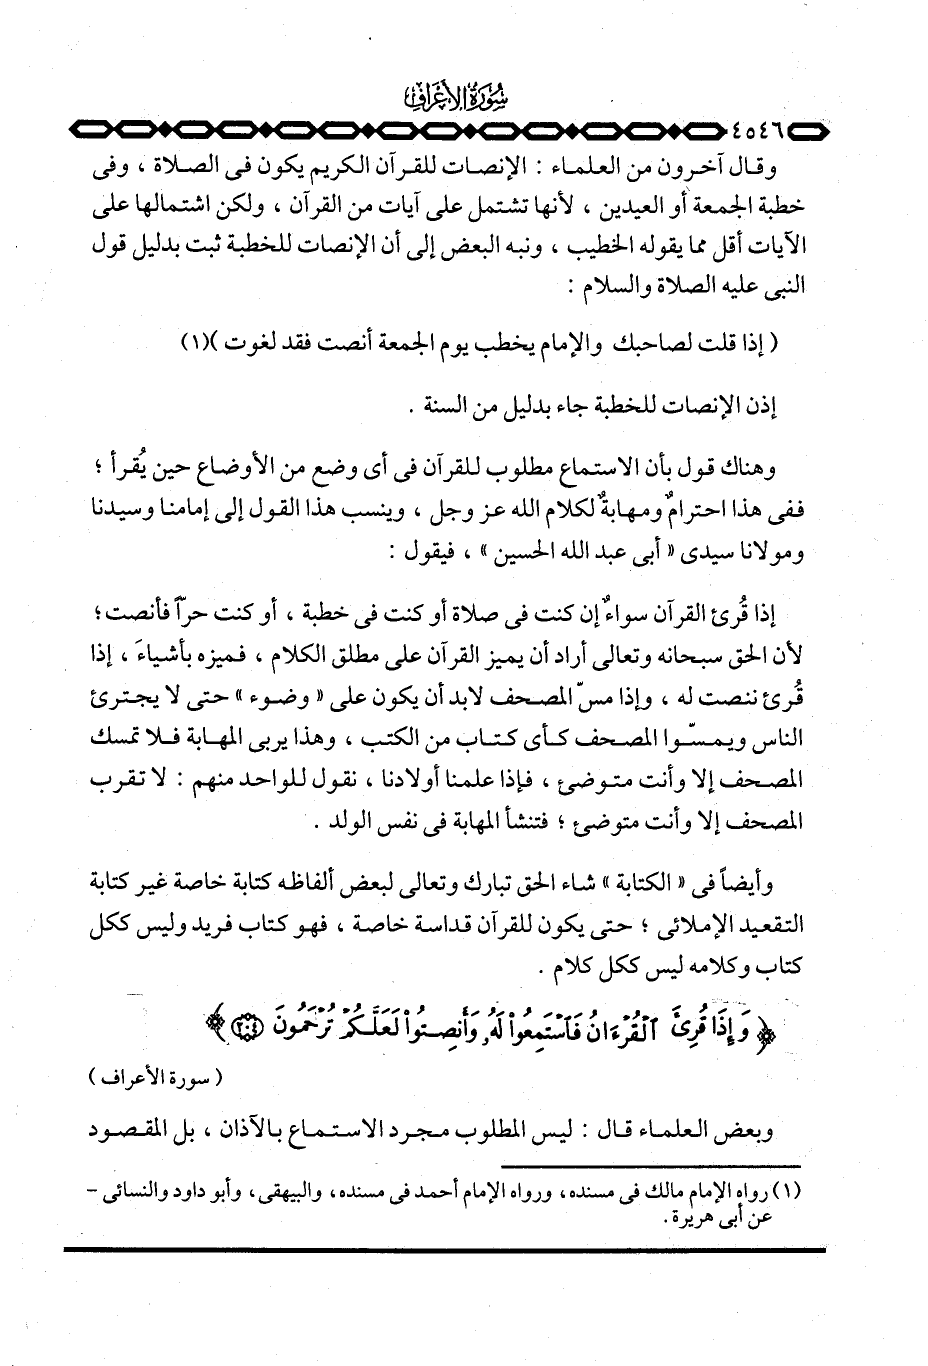 سورة الأعراف
٤٥٤٦
وقال آخرون من العلماء : الإنصات للقرآن الكريم يكون فى الصلاة ، وفى
خطبة الجمعة أو العيدين ، لأنها تشتمل على آيات من القرآن ، ولكن اشتمالها على
الآيات أقل مما يقوله الخطيب ، ونبه البعض إلى أن الإنصات للخطبة ثبت بدليل قول
النبى عليه الصلاة والسلام :
( إذا قلت لصاحبك والإمام يخطب يوم الجمعة أنصت فقد لغوت )(١)
إذن الإنصات للخطبة جاء بدليل من السنة .
وهناك قول بأن الاستماع مطلوب للقرآن فى أى وضع من الأوضاع حين يُقرأ ؛
ففى هذا احترامٌ ومهابةٌ لكلام الله عز وجل ، وينسب هذا القول إلى إمامنا وسيدنا
ومولانا سيدى « أبى عبد الله الحسين » ، فيقول :
إذا قُرئ القرآن سواءٌ إن كنت فى صلاة أو كنت فى خطبة ، أو كنت حرّاً فأنصت ؛
لأن الحق سبحانه وتعالى أراد أن يميز القرآن على مطلق الكلام ، فميزه بأشياءَ ، إذا
قُرئ ننصت له ، وإذا مسّ المصحف لابد أن يكون على « وضوء » حتى لا يجترئ
الناس ويمسّوا المصحف كأى كتاب من الكتب ، وهذا يربى المهابة فلا تمسك
المصحف إلا وأنت متوضئ ، فإذا علمنا أولادنا ، نقول للواحد منهم : لا تقرب
المصحف إلا وأنت متوضئ ؛ فتنشأ المهابة فى نفس الولد .
وأيضاً فى « الكتابة » شاء الحق تبارك وتعالى لبعض ألفاظه كتابة خاصة غير كتابة
التقعيد الإملائى ؛ حتى يكون للقرآن قداسة خاصة ، فهو كتاب فريد وليس ككل
كتاب وكلامه ليس ككل كلام .
﴿ وَإِذَا قُرِئَ ٱلْقُرْءَانُ فَٱسْتَمِعُوا۟ لَهُۥ وَأَنصِتُوا۟ لَعَلَّكُمْ تُرْحَمُونَ ٢٠٤ ﴾
( سورة الأعراف )
وبعض العلماء قال : ليس المطلوب مجرد الاستماع بالآذان ، بل المقصود
(١) رواه الإمام مالك فى مسنده، ورواه الإمام أحمد فى مسنده، والبيهقى، وأبو داود والنسائى -
عن أبى هريرة.